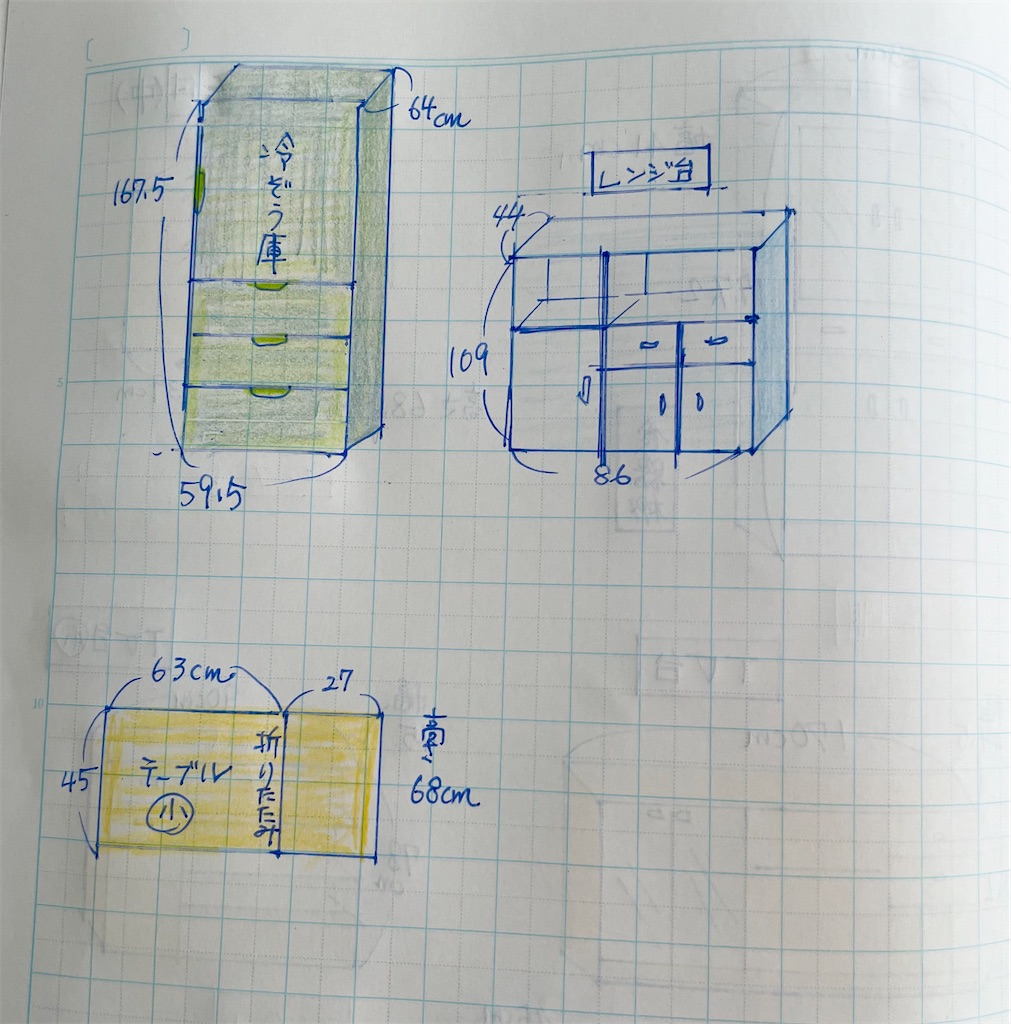 64cm
167.5
冷ぞう庫
59.5
レンジ台
44
109
86
63cm
27
45
テーブル
小
折りたたみ
高さ
68cm
5
10